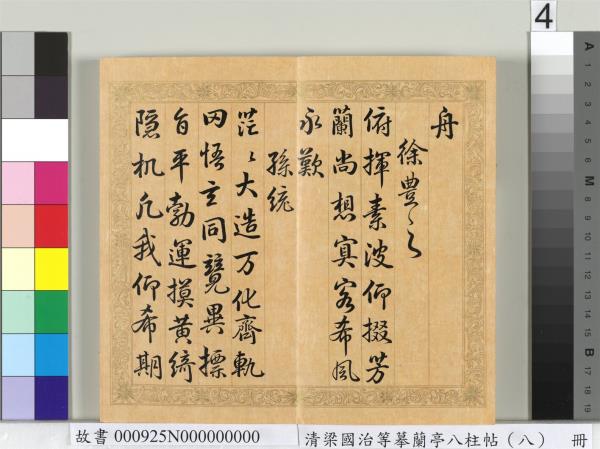 舟
徐豐之
俯揮素波仰掇芳
蘭尚想冥客希風
永歎
孫統
茫〻大造万化齊軌
罔悟玄同競異摽
旨平勃運摸黃綺
隱机凡我仰希期
4
故書 000925N000000000
清梁國治等摹蘭亭八柱帖(八) 冊
A 1 2 3 4 5 6 M 8 9 10 11 12 13 14 15 B 17 18 19